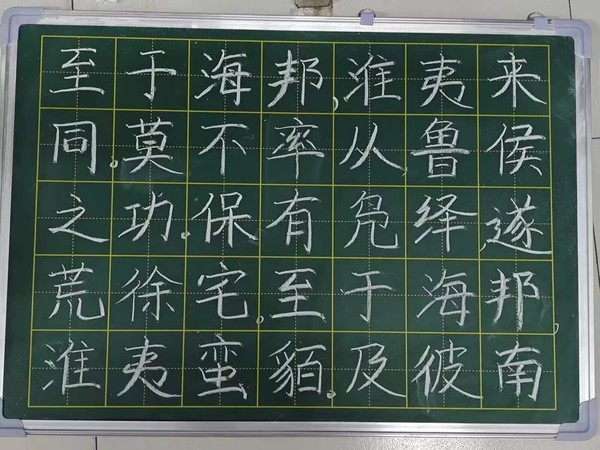 至于海邦,淮夷来
同。莫不率从,鲁侯
之功。保有凫绎,遂
荒徐宅。至于海邦,
淮夷蛮貊。及彼南